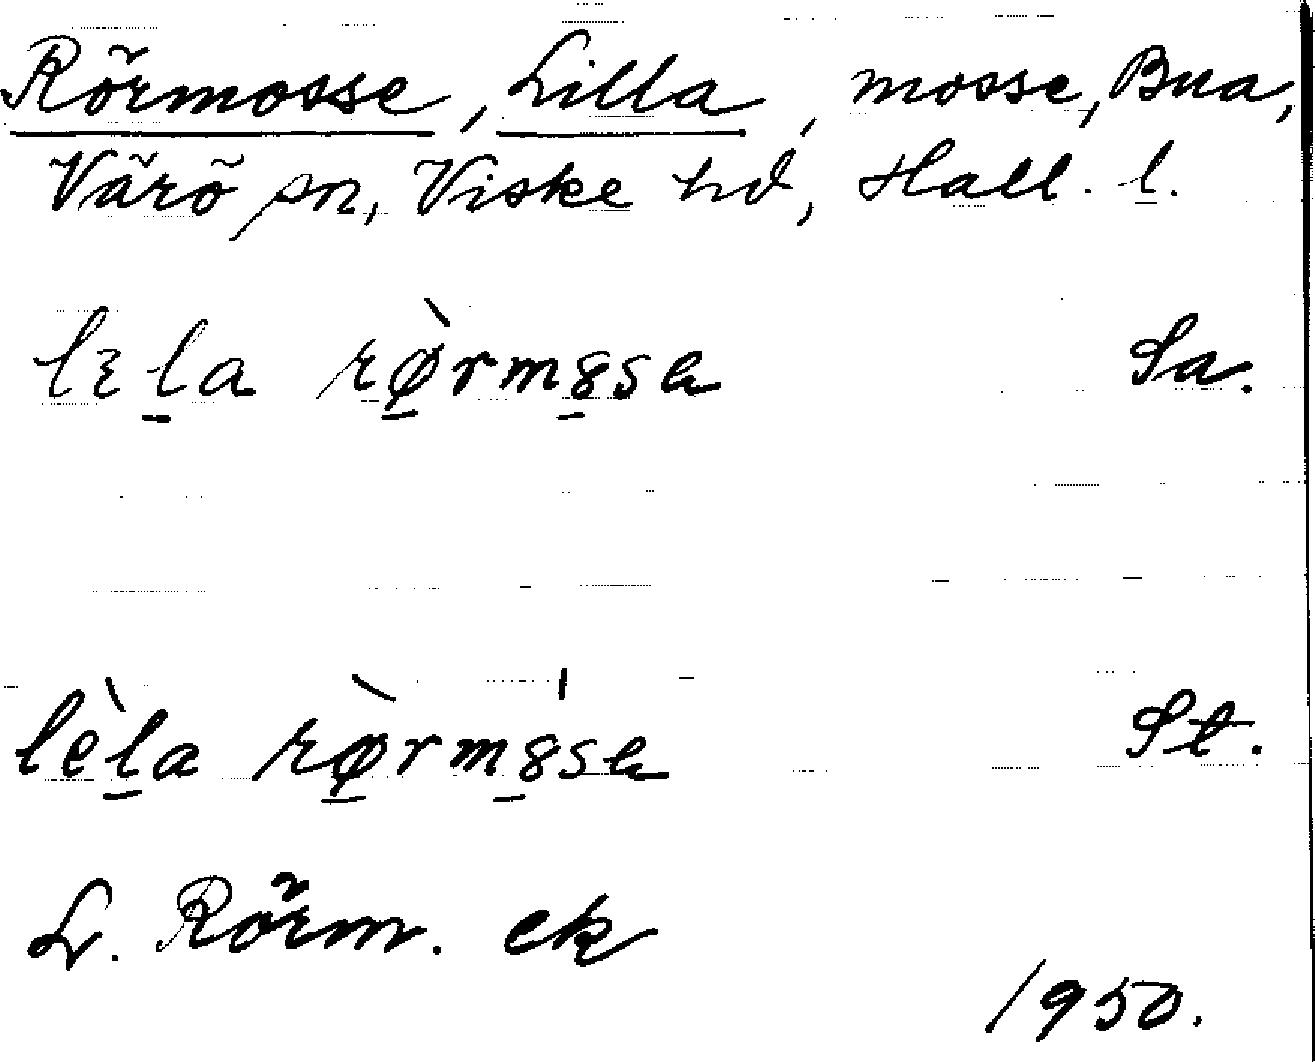 Rörmosse, Lilla, mosse, Bua,
Värö sn, Viske hd, Hall. l.
lɛl̠a rø̠̀rmo̠sa Sa.
lèl̠a rø̠̀rmo̠sa St.
L. Rörm. ek
1950.